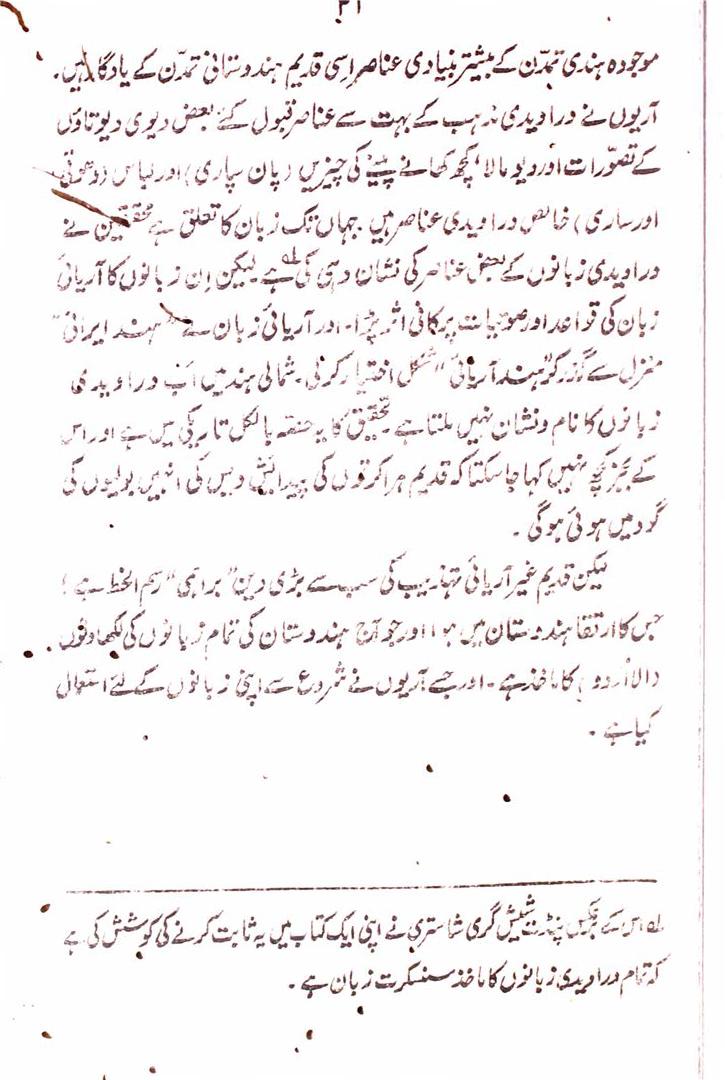 ۳۱
موجودہ ہندی تمدّن کے بیشتر بنیادی عناصر اسی قدیم ہندوستانی تمدّن کے یادگار ہیں.
آریوں نے دراویدی مذہب کے بہت سے عناصر قبول کئے بعض دیوی دیوتاؤں
کے تصوّرات اور دیومالا، کچھ کھانے پینے کی چیزیں (پان سپاری) اور لباس (دھوتی
اور ساری) خالص دراویدی عناصر ہیں. جہاں تک زبان کا تعلق ہے محققین نے
دراویدی زبانوں کے بعض عناصر کی نشان دہی کی ہے لہ لیکن ان زبانوں کا آریائی
زبان کی قواعد اور صوتیات پر کافی اثر پڑا۔ اور آریائی زبان نے "ہند ایرانی"
منزل سے گذر کر "ہند آریائی" شکل اختیار کرلی۔ شمالی ہند میں اب دراویدی
زبانوں کا نام و نشان نہیں ملتا ہے تحقیق کا یہ حصّہ بالکل تاریکی میں ہے اور اس
کے بجز کچھ نہیں کہا جاسکتا کہ قدیم پراکرتوں کی پیدائش دیس کی انہیں بولیوں کی
گود میں ہوئی ہوگی ۔
لیکن قدیم غیر آریائی تہذیب کی سب سے بڑی دین "براہمی" رسم الخط ہے؛
جس کا ارتقا ہندوستان میں ہوا اور جو آج ہندوستان کی تمام زبانوں کی لکھاوٹوں
(الا اُردو) کا ماخذ ہے۔ اور جسے آریوں نے شروع سے اپنی زبانوں کے لئے استعمال
کیا ہے ۔
لہ اس کے برعکس پنڈت شیش گری شاستری نے اپنی ایک کتاب میں یہ ثابت کرنے کی کوشش کی ہے
کہ تمام دراویدی زبانوں کا ماخذ سنسکرت زبان ہے ۔